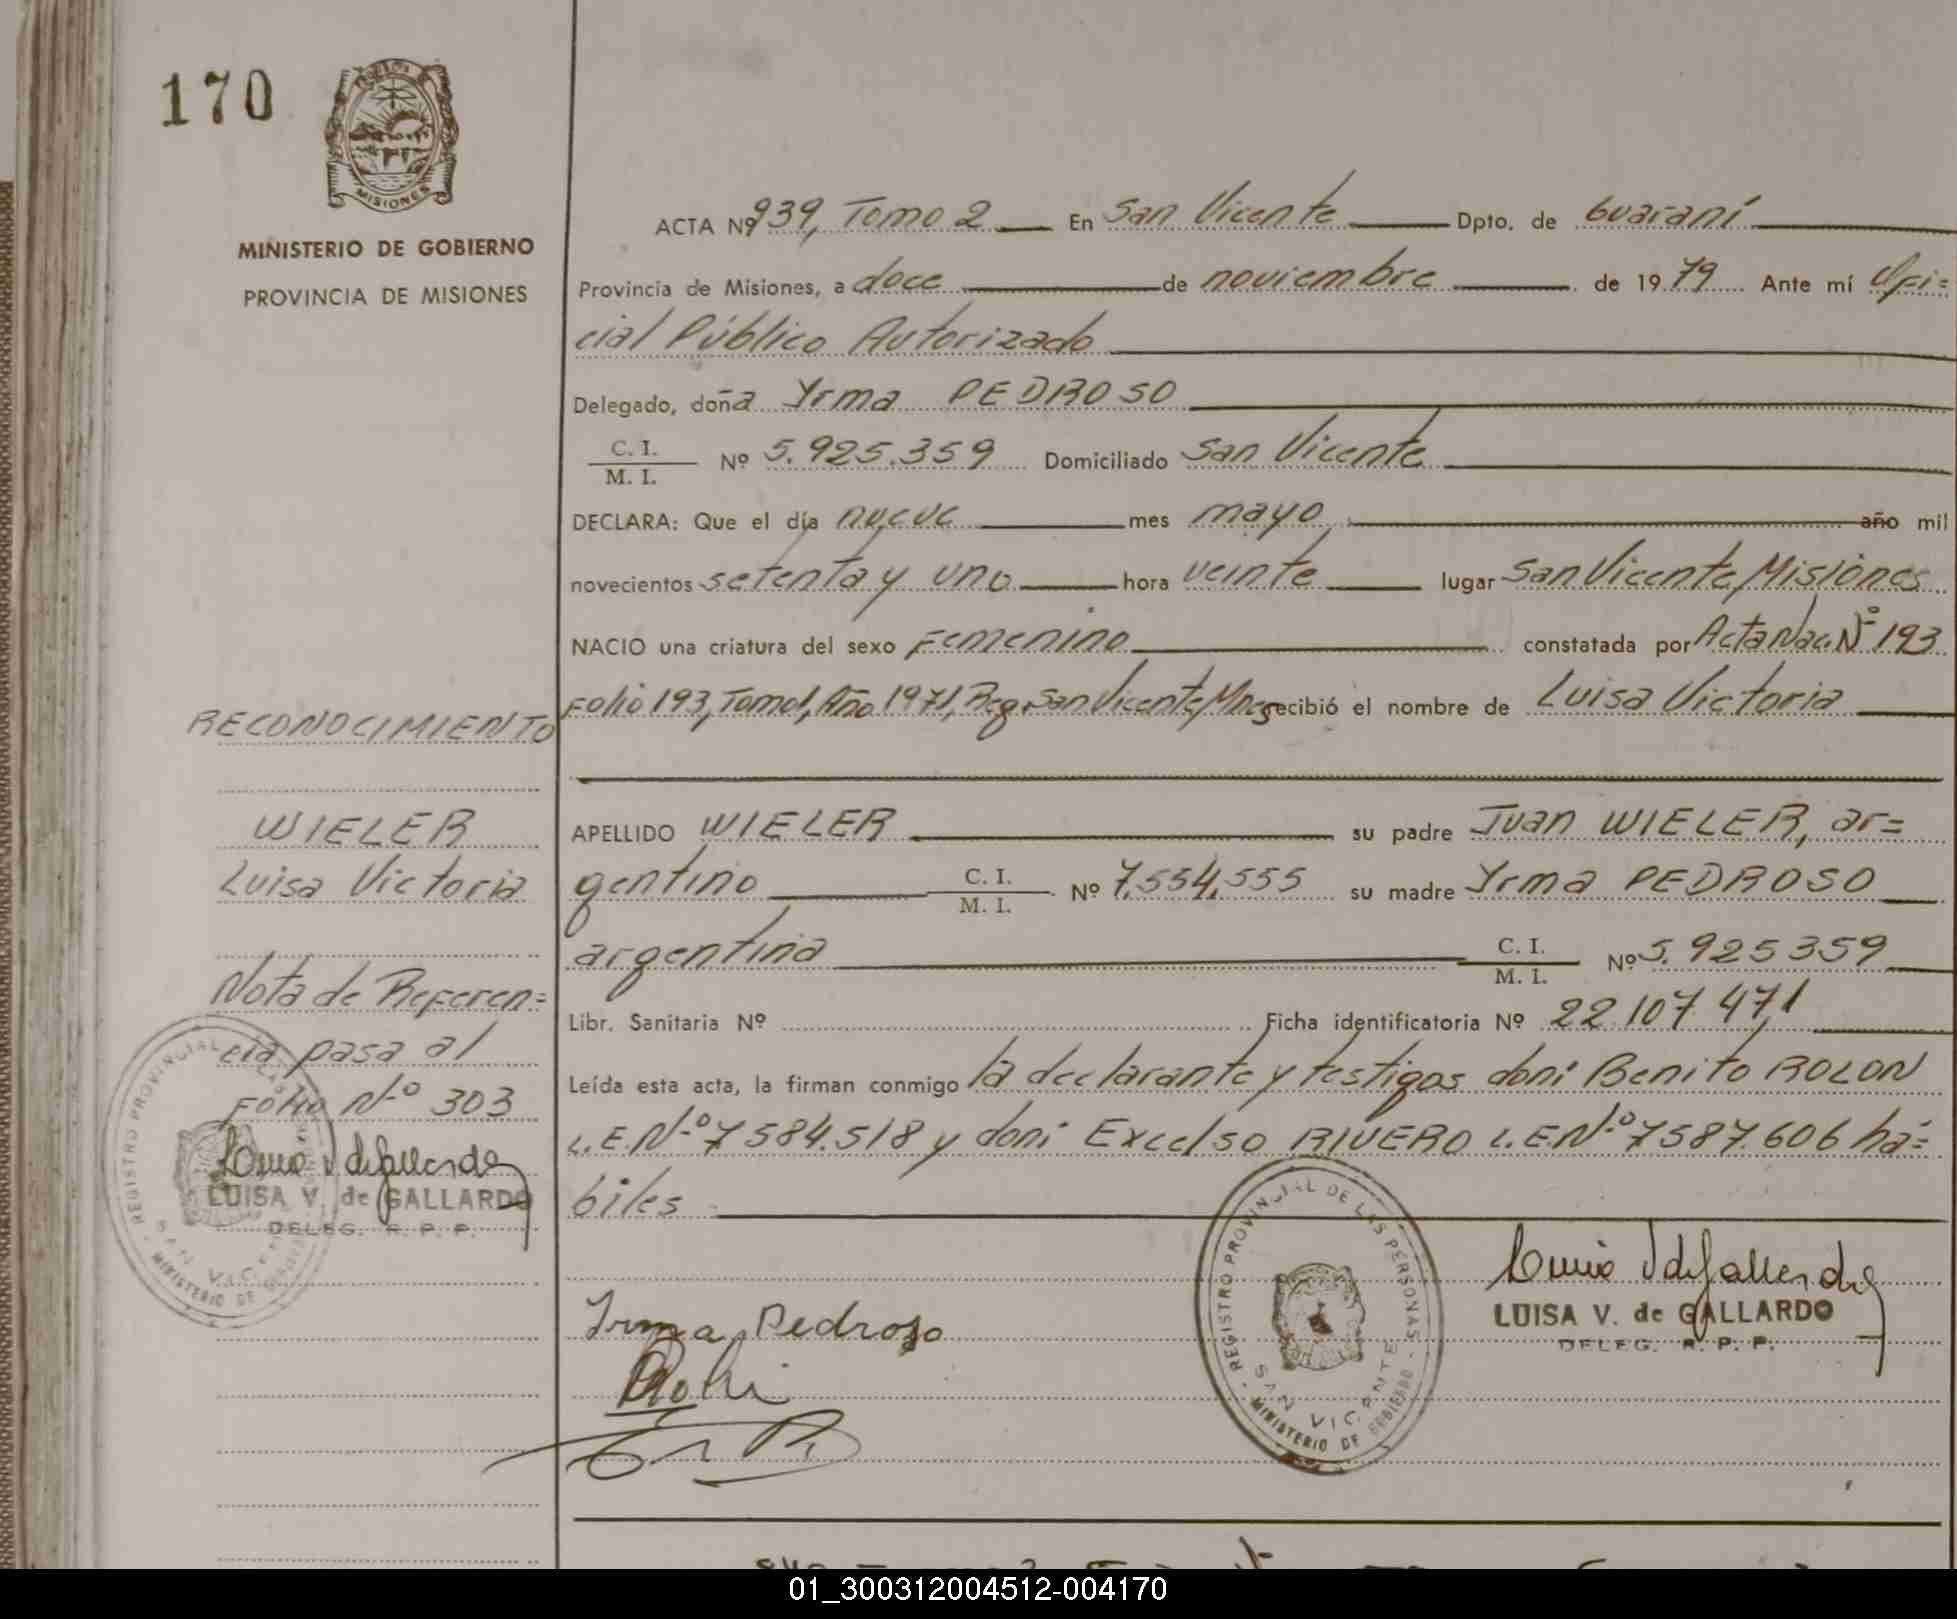 170
MISIONES
MINISTERIO DE GOBIERNO
PROVINCIA DE MISIONES
ACTA Nº 939, Tomo 2 En San Vicente Dpto. de Guaraní
Provincia de Misiones, a doce de noviembre de 1979 Ante mí Ofi=
cial Público Autorizado
Delegado, doña Yrma PEDROSO
C. I.
M. I.
Nº 5.925.359 Domiciliado San Vicente
DECLARA: Que el día nueve mes mayo año mil
novecientos setenta y uno hora veinte lugar San Vicente, Misiones
NACIO una criatura del sexo Femenino constatada por Acta Nac. Nº 193
Folio 193, Tomo 1, Año 1971, Reg. San Vicente, Mnes recibió el nombre de Luisa Victoria
APELLIDO WIELER su padre Juan WIELER, ar=
gentino C. I. M. I. Nº 7.554.555 su madre Yrma PEDROSO
argentina C. I. M. I. Nº 5.925359
Libr. Sanitaria Nº Ficha identificatoria Nº 22.107.471
Leída esta acta, la firman conmigo la declarante y testigos don: Benito ROLON
L.E.Nº 7584.518 y don: Excelso RIVERO L.E.Nº 7587.606 há=
biles
Irma Pedroso
LUISA V. de GALLARDO
DELEG. R. P. P.
REGISTRO PROVINCIAL DE LAS PERSONAS
SAN VICENTE
MINISTERIO DE GOBIERNO
RECONOCIMIENTO
WIELER
Luisa Victoria
Nota de Referen=
cia pasa al
Folio Nº 303
LUISA V. de GALLARDO
DELEG. R. P. P.
REGISTRO PROVINCIAL DE LAS
SAN VICEN
MINISTERIO DE GOBIERNO
01_300312004512-004170